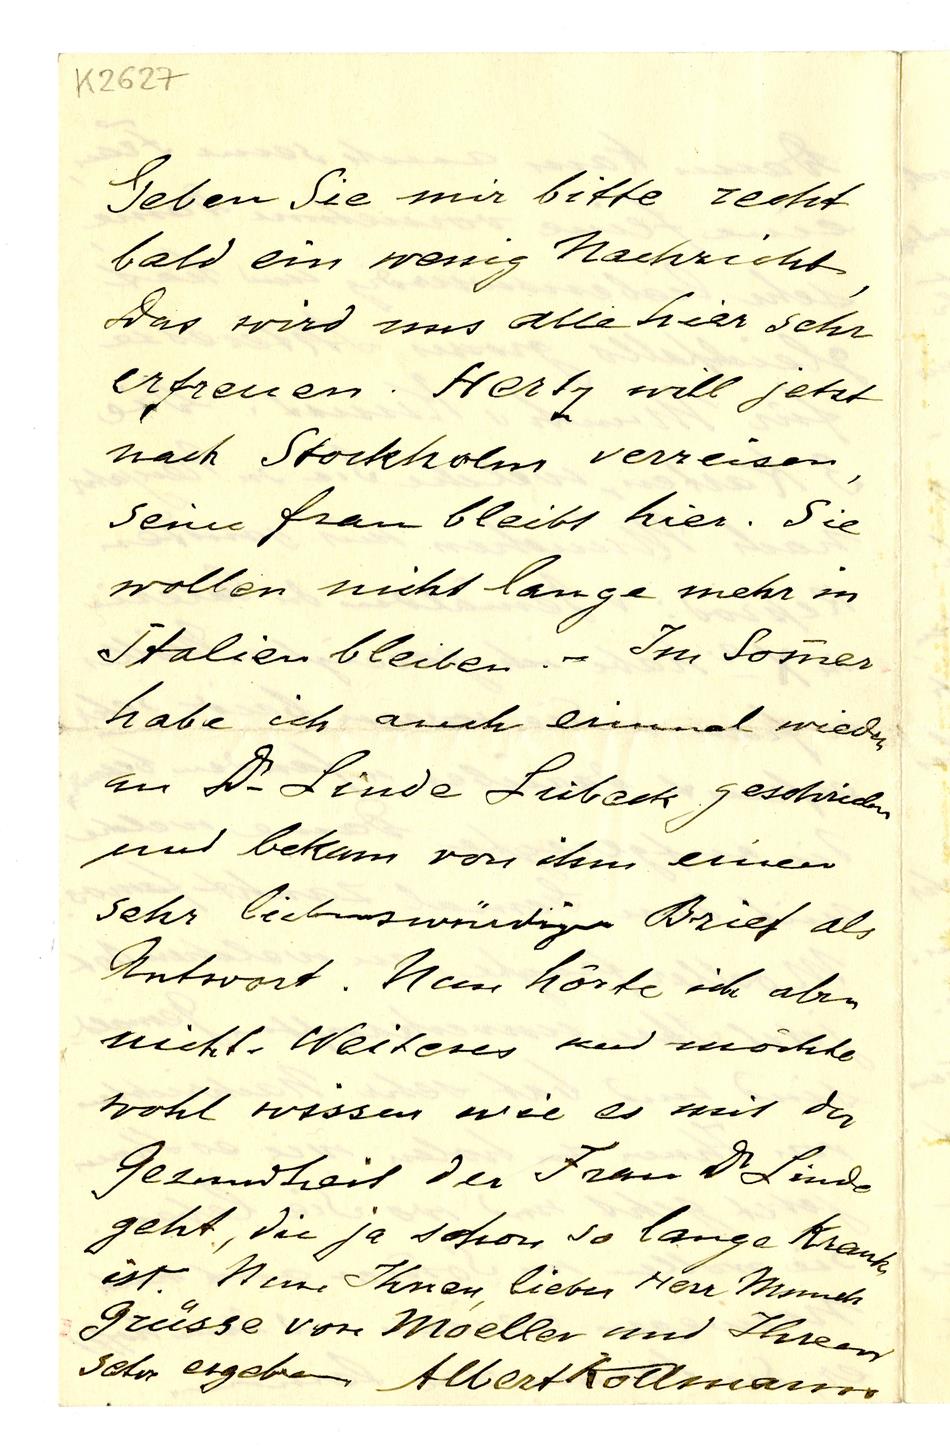 K2627
Geben Sie mir bitte recht
bald ein wenig Nachricht,
das wird uns alle hier sehr
erfreuen. Hertz will jetzt
nach Stockholm verreisen,
seine Frau bleibt hier. Sie
wollen nicht lange mehr in
Italien bleiben. – Im Som̄er
habe ich auch einmal wieder
an Dr Linde Lübeck geschrieben
und bekam von ihm einen
sehr liebenswürdigen Brief als
Antwort. Nun hörte ich aber
nicht Weiteres und möchte
wohl wissen wie es mit der
Gesundheit der Frau Dr Linde
geht, die ja schon so lange Krank
ist. Nun Ihnen, lieber Herr Munch
Grüsse von Moeller und Ihrem
sehr ergebenen Albert Kollmann